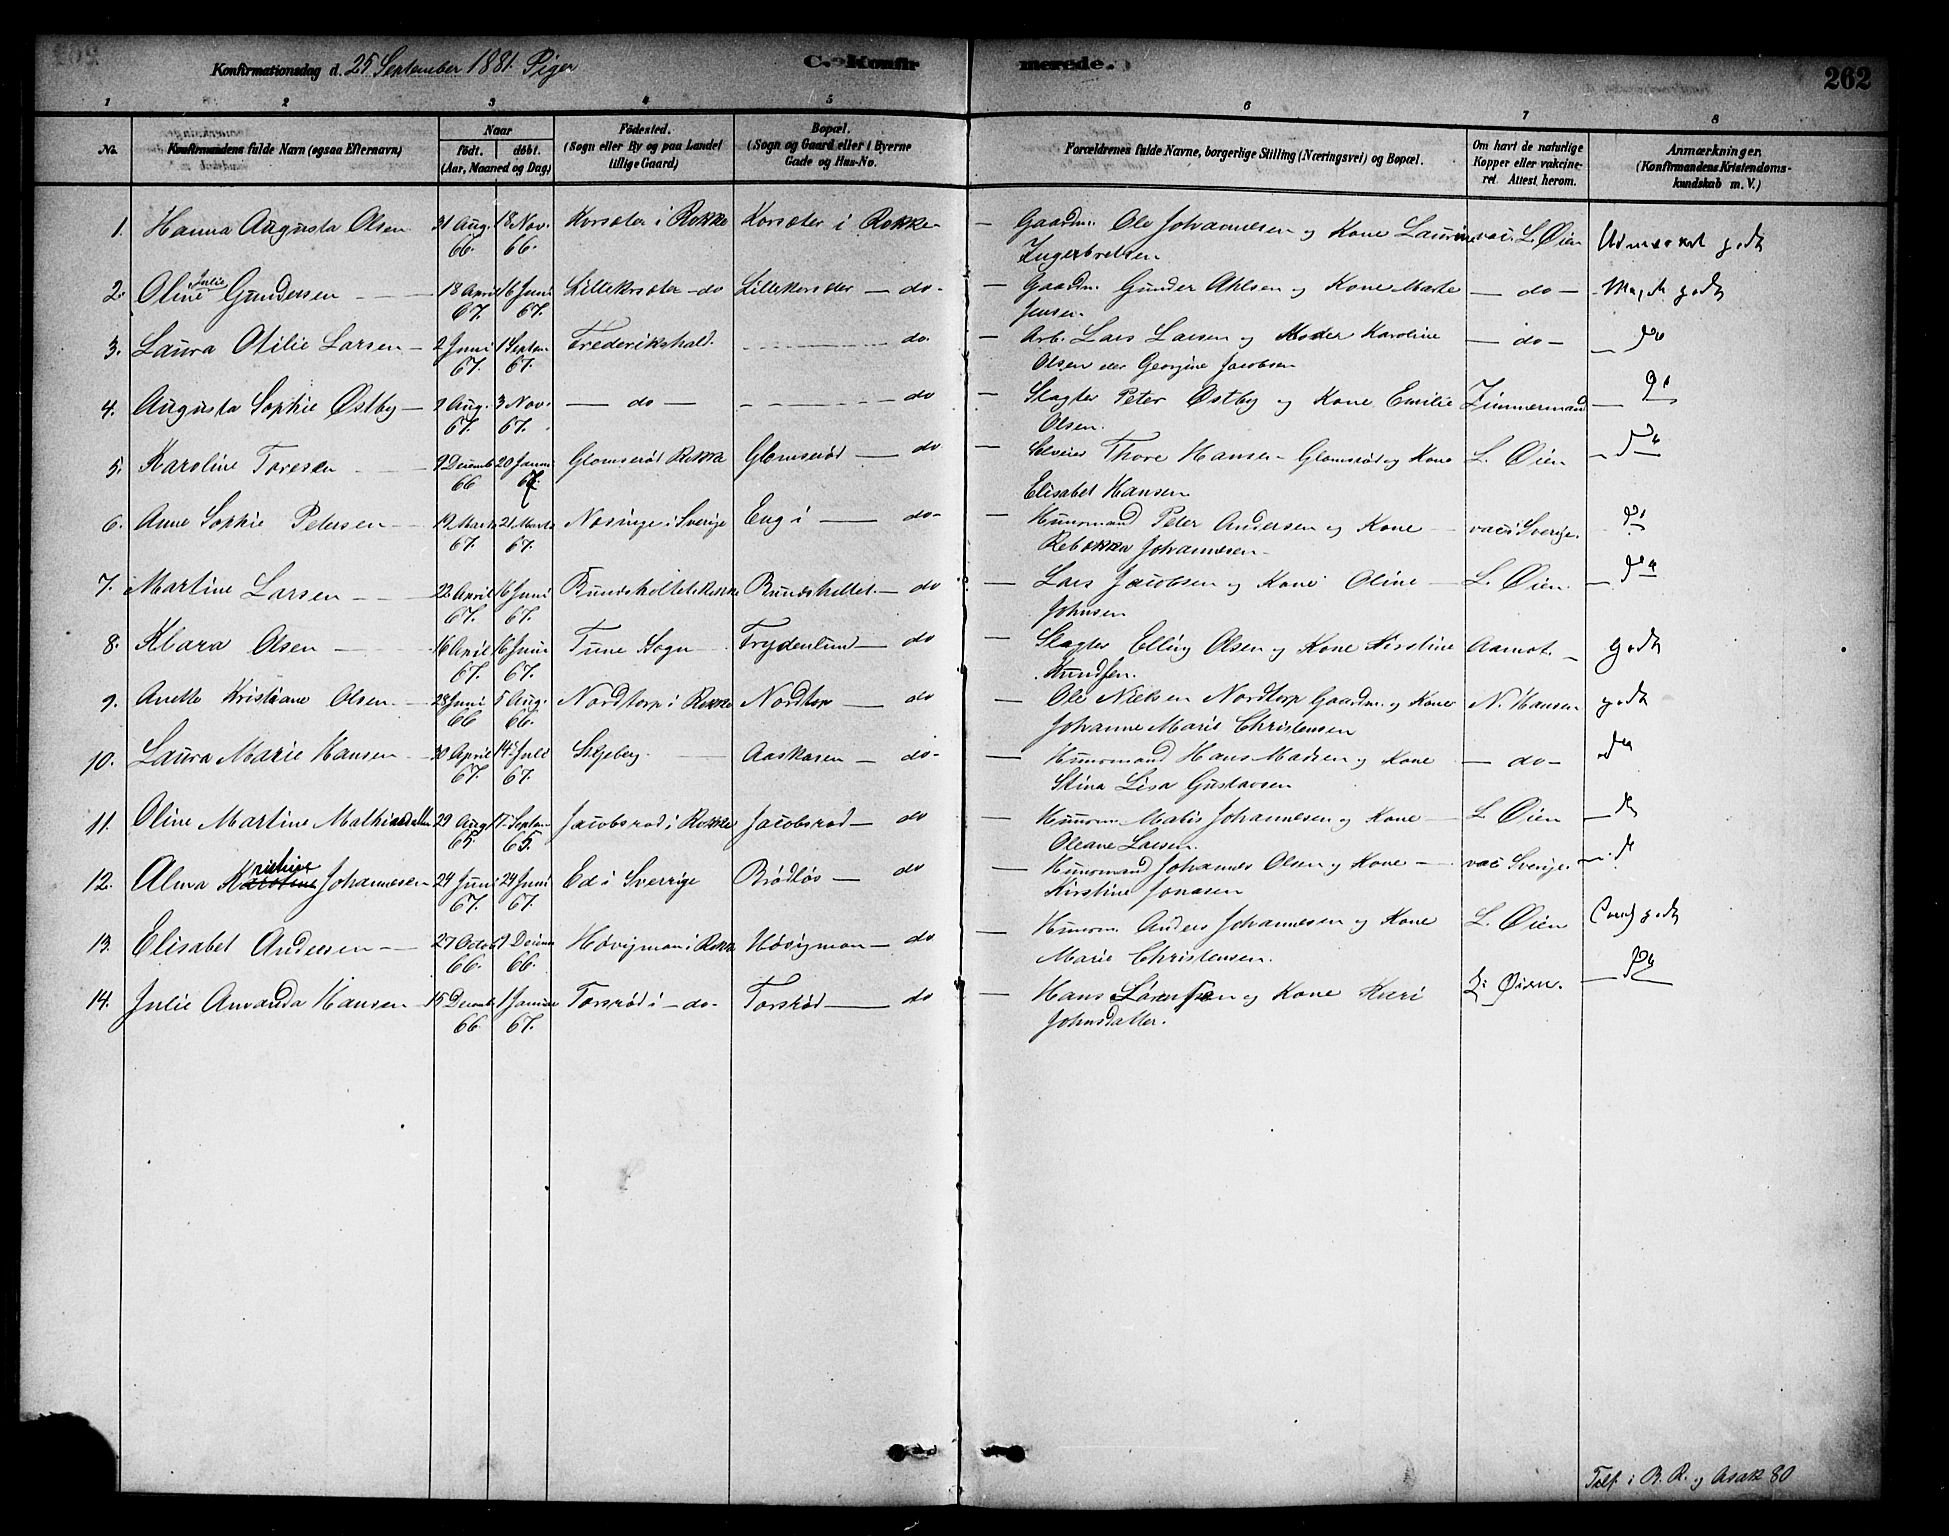 Konfirmationsdag d. 25 September 1881. Piger C. Konfirmerede. 262
1 2 3 4 5 6 7 8
No. Konfirmandens fulde Navn (ogsaa Efternavn) Naar født. døbt. (Aar, Maaned og Dag) Fødested. (Sogn eller By og paa Landet tillige Gaard) Bopæl. (Sogn og Gaard eller i Byerne Gade og Hus-No. Forældrenes fulde Navne, borgerlige Stilling (Næringsvei) og Bopæl. Om havt de naturlige Kopper eller vakcineret. Attest herom. Anmærkninger. (Konfirmandens Kristendomskundskab m. V.)
1. Hanna Augusta Olsen 31 Aug. 66. 18 Nov. 66. Korsæter i Rokke Korsæter i Rokke — Gaardm. Ole Johannesen og Kone Laurine vac. L. Øien Udmærket godt
Ingebretsen
2. Oline Julie Gundersen — 18 April 67. 16 Juni 67. Lillekorsæter - do Lillekorsæter — do - — Gaardm. Gunder Ahlsen og Kone Marte — do — Meget godt
Jensen.
3. Laura Otilie Larsen — 2 Juni 67. 1 Septem 67. Frederikshald. do. — Arb. Lars Larsen og Moder Karoline — do — — do
Olsen eller Georgine Jacobsen
4. Augusta Sophie Østby — 9 Aug. 67. 3 Nov. 67. — do — do — Slagter Peter Østby og Kone Emilie Zimmermand — do
Olsen.
5. Karoline Toresen — 9 Decemb 66 20 Janu 67. Glomserød Rokke Glomserød — do — Selveier Thore Hansen Glomsrød og Kone L. Øien — do
Elisabet Hansen
6. Anne Sophie Petersen — 19 Marts 67. 21 Marts 67. Nosinge i Sverige Eng i — do - — Husmand Peter Andersen og Kone — vac i Sverige. — do
Rebekka Johannesen —
7. Martine Larsen — 22 April 67. 6 Juni 67. Bundsholtet Rokke Bundsholtet. — do — Lars Jacobsen og Kone Oline — L. Øien — do
Johnsen
8. Klara Olsen — 16 April 67. 6 Juni 67. Tune Sogn — Frydenlund — do — Slagter Elling Olsen og Kone Kirstine Aamot. — godt
Knudsen.
9. Anette Kristiane Olsen — 28 Juni 66 5 Aug. 66. Nordtorp i Rokke Nordtorp — do — Ole Nielsen Nordtorp Gaardm. og Kone N. Hansen godt
Johanne Marie Christensen
10. Laura Marie Hansen — 30 April 67. 14 Juli 67. Skjeberg. — Aaskasen — do - — Husmand Hans Madsen og Kone — do — do
Stina Lisa Gustavsen
11. Oline Martine Mathisdatter 29 Aug 65. 17 Septem 65. Jacobsrød i Rokke Jacobsrød — do — Husm. Matis Johannesen og Kone — L. Øien — do
Oleane Larsen.
12. Alma Johannesen — 24 Juni 67. 24 Juni 67. Ed i Sverrige Brødløs — do — Husmand Johannes Olsen og Kone — vac i Sverige — do
Kirstine Jonasen
13. Elisabet Andersen — 27 Octob 66. 9 Decem 66. Høvigmon i Rokke Høvigmon — do — Husm. Anders Johannesen og Kone L. Øien godt
Marie Christensen.
14. Julie Amanda Hansen — 15 Decemb 66. 1 Januar 67. Torsrød i — do - Torsrød — do — Hans Sørensen og Kone Kari L. Øien. — do
Johnsdatter.
Tilf. i B. R. og Asak 80